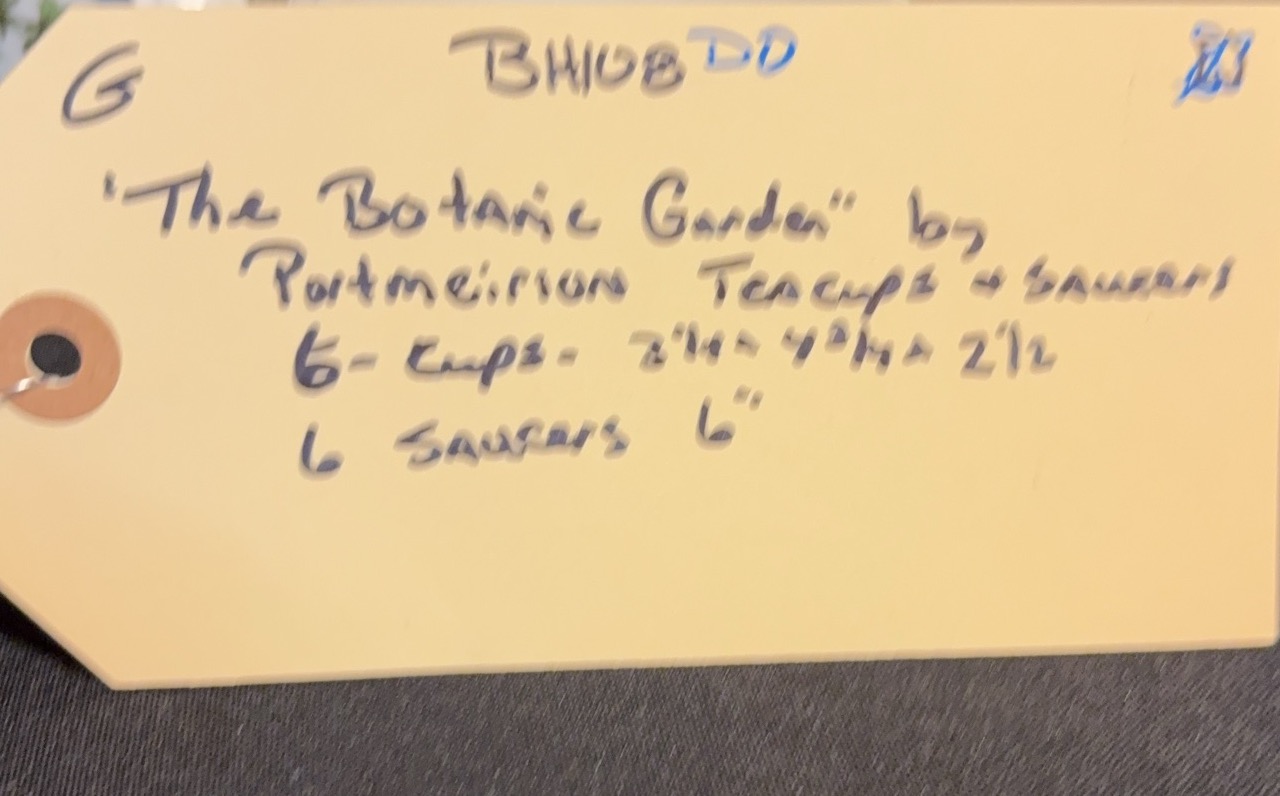 G BH108 DD
"The Botanic Garden" by
Portmeirion Teacups + Saucers
6- Cups- x 2 1/2
6 Saucers 6"